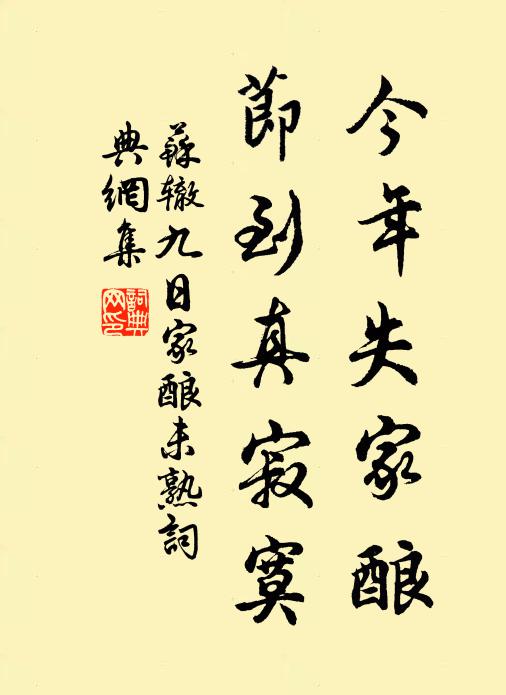 今年失家酿
節到真寂寞
蘇辙九日家酿未熟詞
典網集
詞典网印